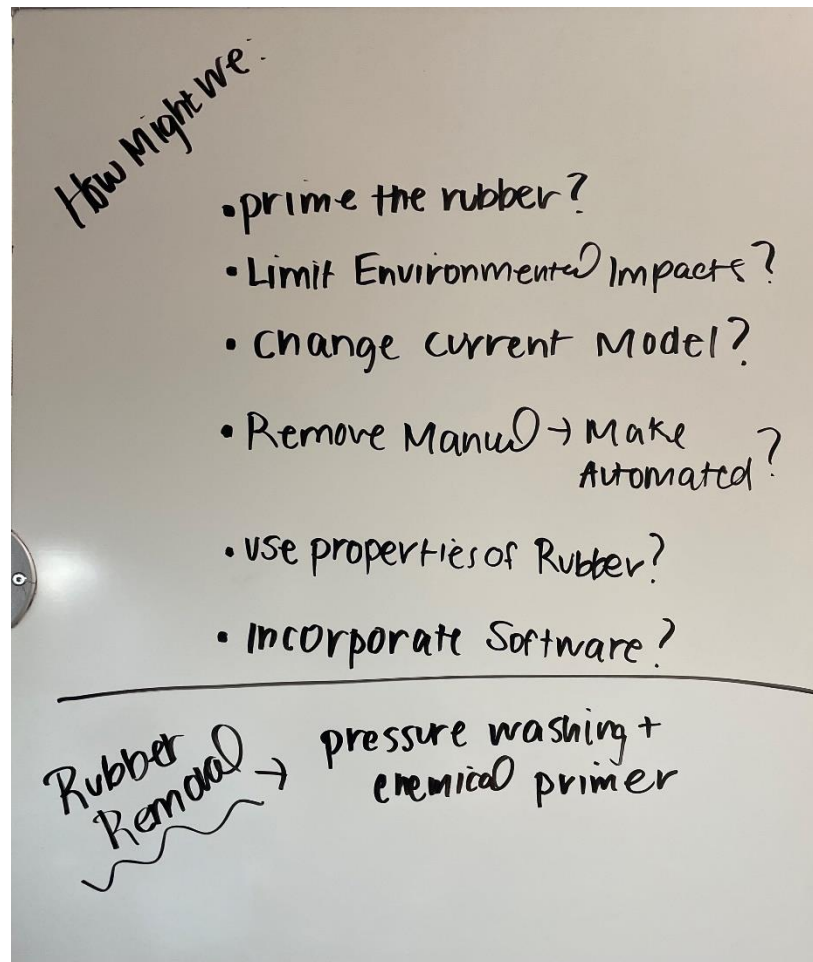 How Might We:
• prime the rubber?
• Limit Environmental Impacts?
• Change Current Model?
• Remove Manual → Make
Automated?
• Use properties of Rubber?
• Incorporate Software?
Rubber
Removal →
pressure washing +
chemical primer